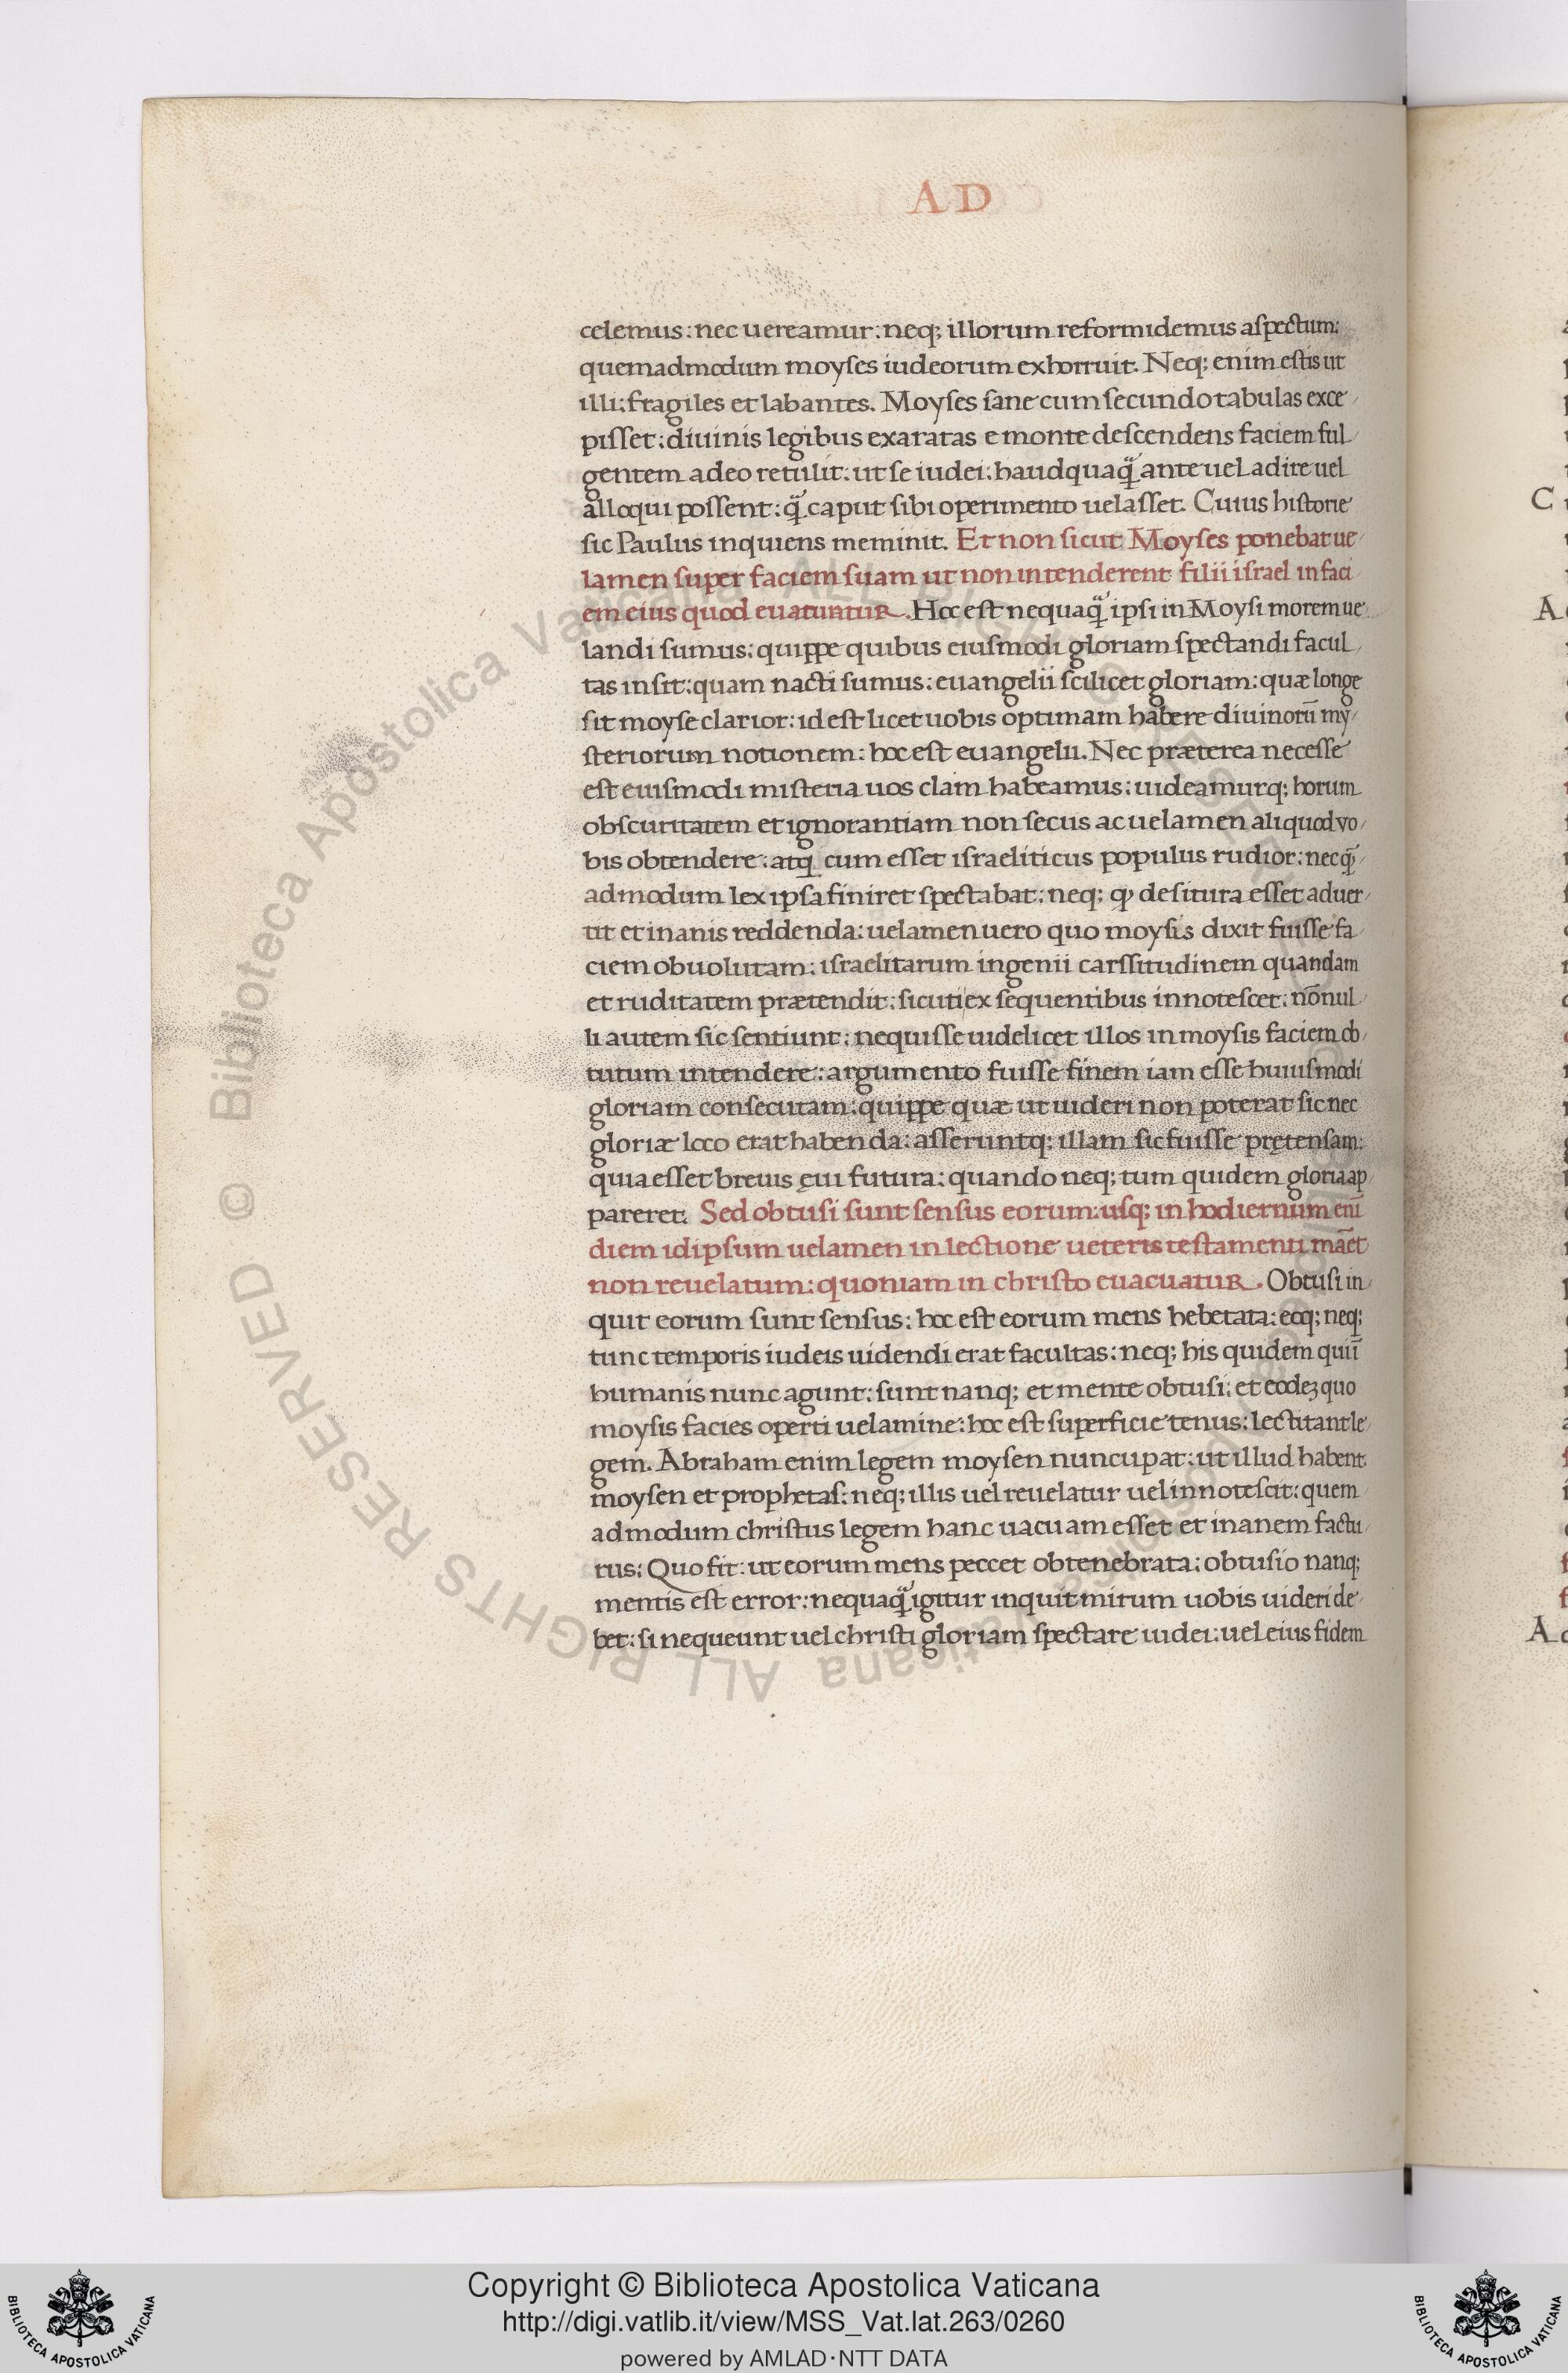 AD
celemus: nec uereamur: neq; illorum reformidemus aspectum:
quemadmodum moyses iudeorum exhorruit. Neq; enim estis ut
illi: fragiles et labantes. Moyses sane cum secundo tabulas exce
pisset: diuinis legibus exaratas e monte descendens faciem ful
gentem adeo retulit: ut se iudei: haudquaq̃ ante uel adire uel
alloqui possent: q̃ caput sibi operimento uelasset. Cuius historie
sic Paulus inquiens meminit. Et non sicut Moyses ponebat ue
lamen super faciem suam ut non intenderent filii israel in faci
em eius quod euatuatur. Hoc est nequaq̃ ipsi in Moysi morem ue
landi sumus: quippe quibus eiusmodi gloriam spectandi facul
tas insit: quam nacti sumus: euangelii scilicet gloriam: quæ longe
sit moyse clarior: id est licet uobis optimam habere diuinorū my
steriorum notionem: hoc est euangelii. Nec præterea necesse
est euismodi misteria uos clam habeamus: uideamurq; horum
obscuritatem et ignorantiam non secus ac uelamen aliquod vo
bis obtendere: atq cum esset israeliticus populus rudior: nec q̃
admodum lex ipsa finiret spectabat: neq; ꝙ desitura esset aduer
tit et inanis reddenda: uelamen uero quo moysis dixit fuisse fa
ciem obuolutam: israelitarum ingenii carssitudinem quandam
et ruditatem prætendit: sicuti ex sequentibus innotescet: nōnul
li autem sic sentiunt: nequisse uidelicet illos in moysis faciem ob
tutum intendere: argumento fuisse finem iam esse huiusmodi
gloriam consecutam: quippe quæ ut uideri non poterat sic nec
gloriæ loco erat habenda: asseruntq; illam sic fuisse prętensam:
quia esset breuis ęui futura: quando neq; tum quidem gloria ap
pareret. Sed obtusi sunt sensus eorum: usq; in hodiernum enī
diem idipsum uelamen in lectione ueteris testamenti māet
non reuelatum: quoniam in christo euacuatur. Obtusi in
quit eorum sunt sensus: hoc est eorum mens hebetata: eoq; neq;
tunc temporis iudeis uidendi erat facultas: neq; his quidem quiū
humanis nunc agunt: sunt nanq; et mente obtusi: et eodeꝫ quo
moysis facies operti uelamine: hoc est superficie tenus: lectitant le
gem. Abraham enim legem moysen nuncupat: ut illud habent
moysen et prophetas: neq; illis uel reuelatur uel innotescit: quem
admodum christus legem hanc uacuam esset et inanem factu
rus: Quo fit: ut eorum mens peccet obtenebrata: obtusio nanq;
mentis est error: nequaq̃ igitur inquit mirum uobis uideri de
bet: si nequeunt uel christi gloriam spectare iudei: uel eius fidem
Copyright © Biblioteca Apostolica Vaticana
http://digi.vatlib.it/view/MSS_Vat.lat.263/0260
powered by AMLAD·NTT DATA